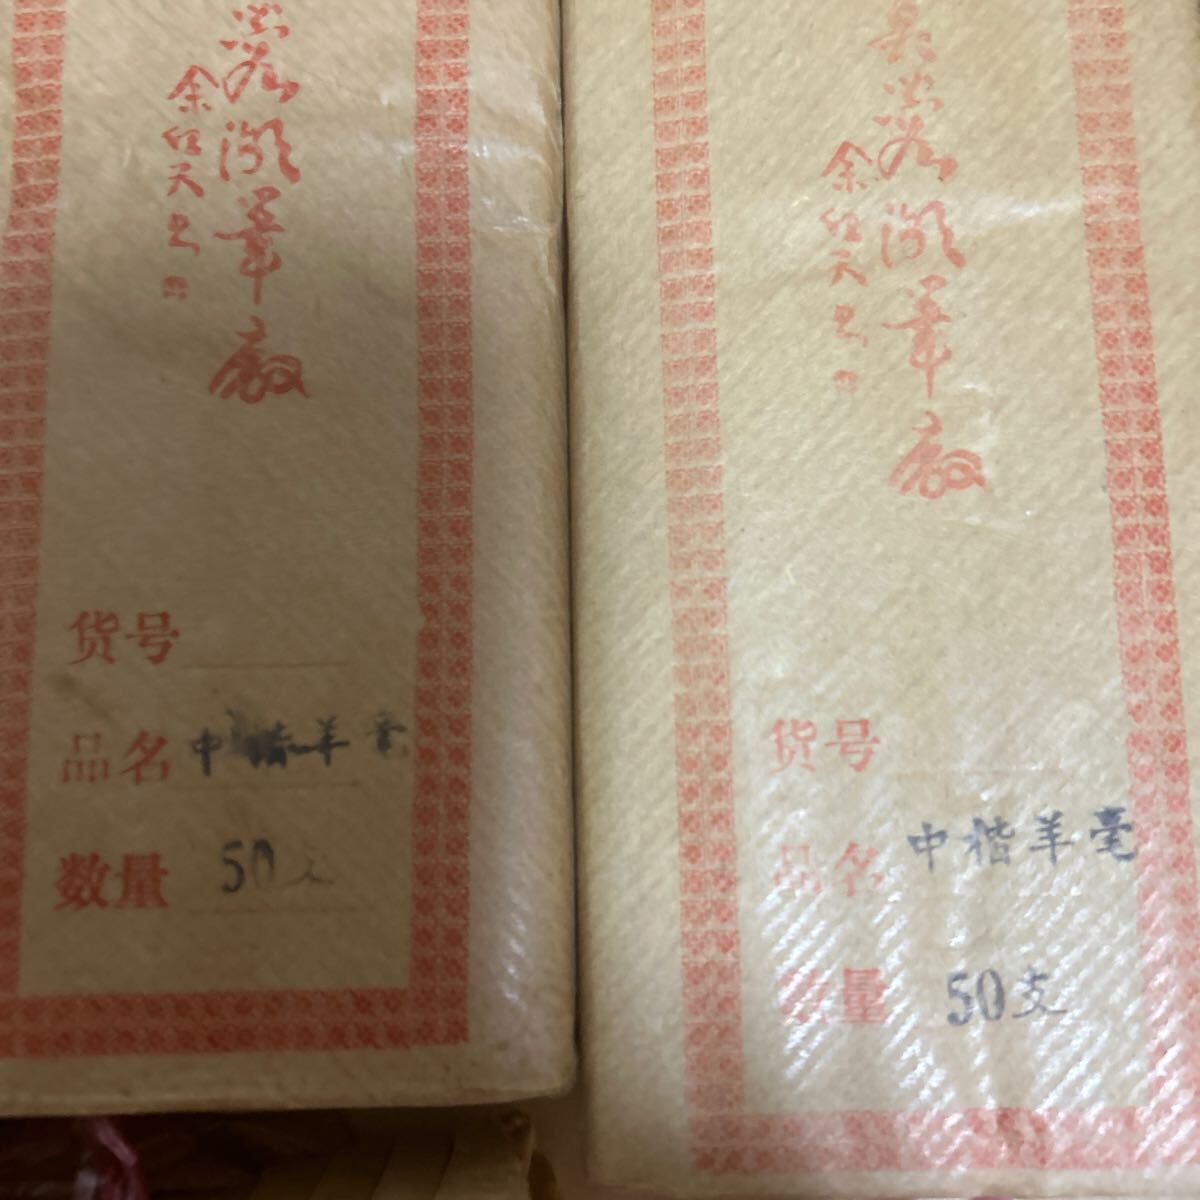 湖笔厰
余任天书
货号
品名 中楷羊毫
数量 50支
湖笔厰
余任天书
货号
品名 中楷羊毫
数量 50支